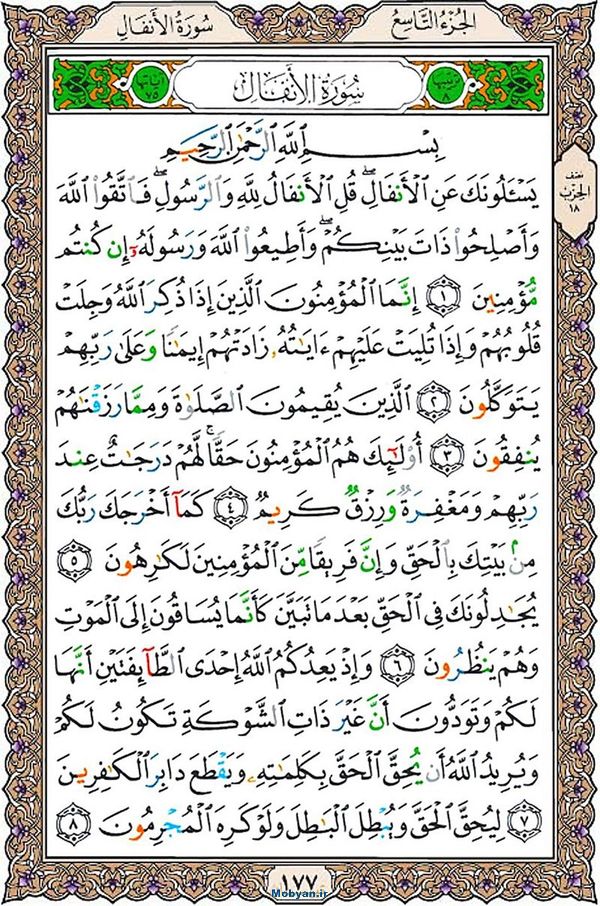 سُورَةُ الأَنفَالِ
الجُزءُ التَّاسِعُ
آياتها ٧٥
سُورَةُ الأَنفَالِ
ترتيبها ٨
بِسْمِ اللَّهِ الرَّحْمَٰنِ الرَّحِيمِ
نصف الحزب ١٨
يَسْـَٔلُونَكَ عَنِ الْأَنفَالِ ۖ قُلِ الْأَنفَالُ لِلَّهِ وَالرَّسُولِ ۖ فَاتَّقُوا اللَّهَ
وَأَصْلِحُوا ذَاتَ بَيْنِكُمْ ۖ وَأَطِيعُوا اللَّهَ وَرَسُولَهُۥ إِن كُنتُم
مُّؤْمِنِينَ ﴿١﴾ إِنَّمَا الْمُؤْمِنُونَ الَّذِينَ إِذَا ذُكِرَ اللَّهُ وَجِلَتْ
قُلُوبُهُمْ وَإِذَا تُلِيَتْ عَلَيْهِمْ ءَايَٰتُهُۥ زَادَتْهُمْ إِيمَٰنًا وَعَلَىٰ رَبِّهِمْ
يَتَوَكَّلُونَ ﴿٢﴾ الَّذِينَ يُقِيمُونَ الصَّلَوٰةَ وَمِمَّا رَزَقْنَٰهُمْ
يُنفِقُونَ ﴿٣﴾ أُوْلَٰٓئِكَ هُمُ الْمُؤْمِنُونَ حَقًّا ۚ لَّهُمْ دَرَجَٰتٌ عِندَ
رَبِّهِمْ وَمَغْفِرَةٌ وَرِزْقٌ كَرِيمٌ ﴿٤﴾ كَمَآ أَخْرَجَكَ رَبُّكَ
مِنۢ بَيْتِكَ بِالْحَقِّ وَإِنَّ فَرِيقًا مِّنَ الْمُؤْمِنِينَ لَكَٰرِهُونَ ﴿٥﴾
يُجَٰدِلُونَكَ فِي الْحَقِّ بَعْدَ مَا تَبَيَّنَ كَأَنَّمَا يُسَاقُونَ إِلَى الْمَوْتِ
وَهُمْ يَنظُرُونَ ﴿٦﴾ وَإِذْ يَعِدُكُمُ اللَّهُ إِحْدَى الطَّآئِفَتَيْنِ أَنَّهَا
لَكُمْ وَتَوَدُّونَ أَنَّ غَيْرَ ذَاتِ الشَّوْكَةِ تَكُونُ لَكُمْ
وَيُرِيدُ اللَّهُ أَن يُحِقَّ الْحَقَّ بِكَلِمَٰتِهِۦ وَيَقْطَعَ دَابِرَ الْكَٰفِرِينَ
﴿٧﴾ لِيُحِقَّ الْحَقَّ وَيُبْطِلَ الْبَٰطِلَ وَلَوْ كَرِهَ الْمُجْرِمُونَ ﴿٨﴾
١٧٧
Mobyan.ir